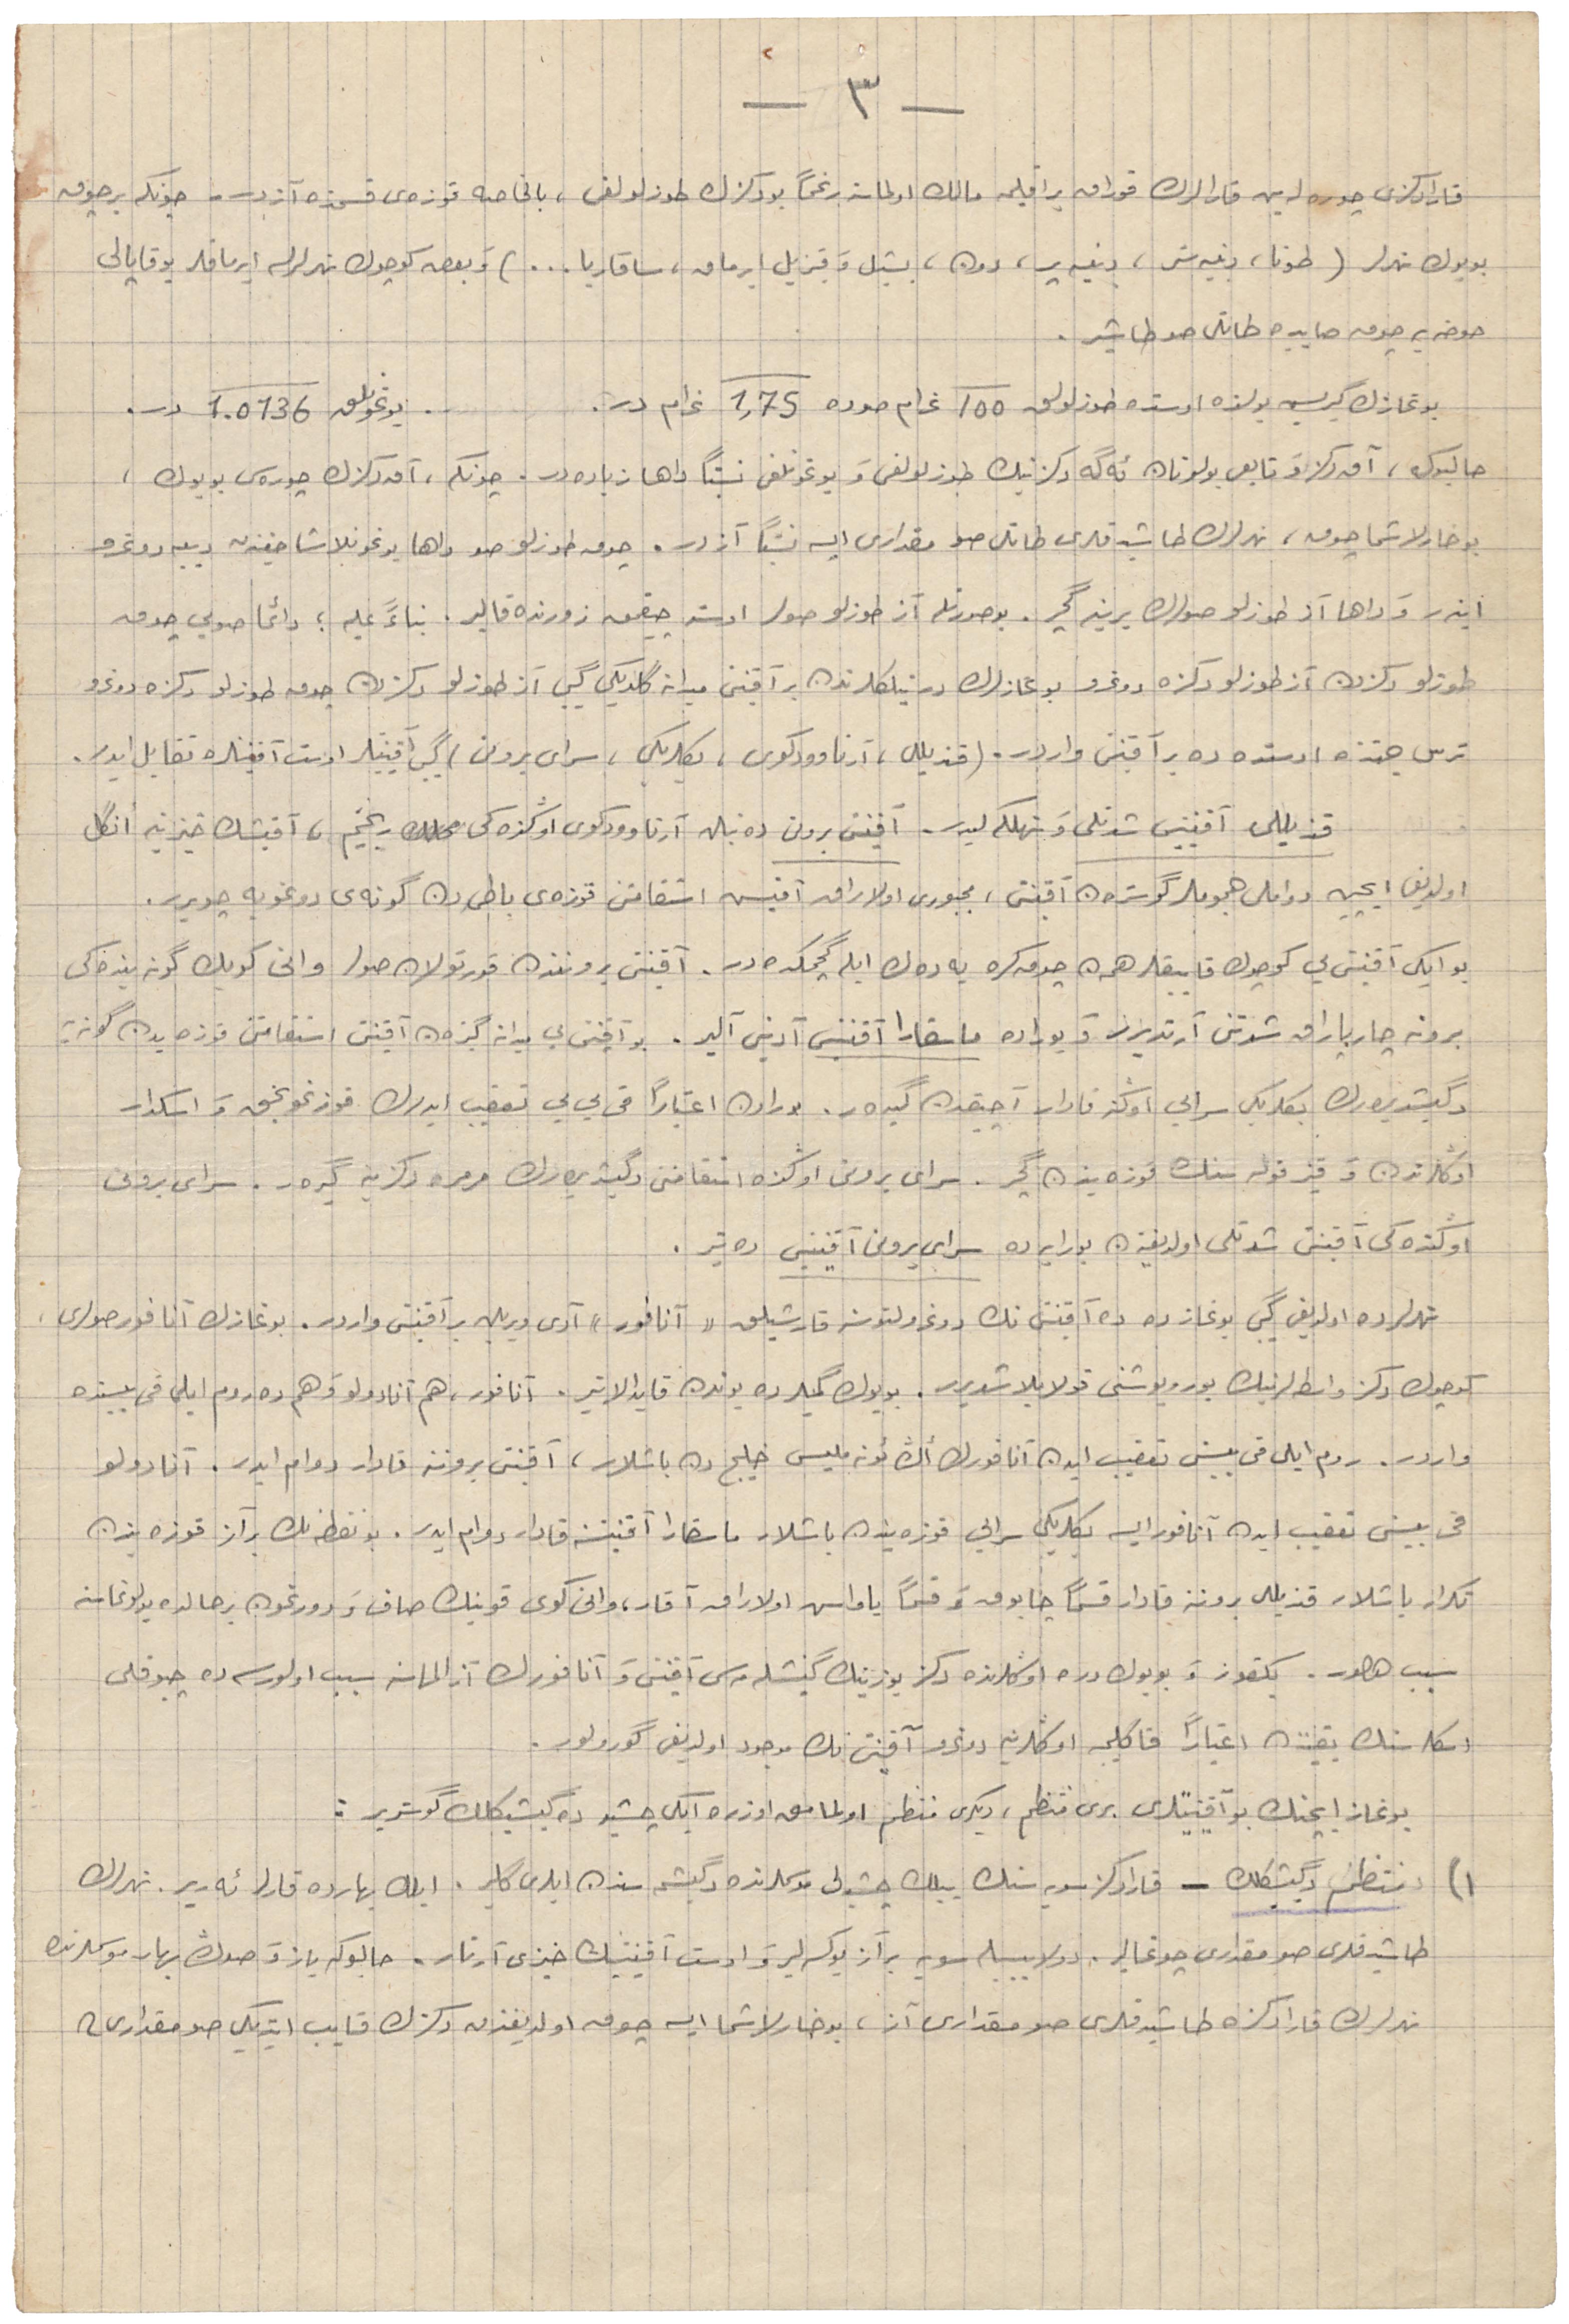 — ٣ —
قارا دكزی چوره له ین قارالرك قوراق بر اقلیمه مالك اولماسنه رغماً بو دكزك طوزلولغی ، باخاصه قوزه ی قسمنده آزدر . چونكه بر چوق
بویوك نهرلر ( طونا ، دنیه ستر ، دنیه پر ، دون ، یشیل و قیزیل ایرماق ، ساقاریا ... ) و بعض كوچوك نهرلرله ایرماقلر بو قاپالی
حوضه یه چوق صاییده طاتلی صو طاشیر .
بوغازك كیریش یولنده اوستده طوزلولق 100 غرام صوده 1,75 غرام در . یوغونلق 1.0136 در .
حالبوكه ، آق دكزه تابع بولونان ئه گه دكزینك طوزلولغی و یوغونلغی نسبتاً داها زیاده در . چونكه ، آق دكزك چوره سی بویوك ،
بوخارلاشما چوق ، نهرلرك طاشیدقلری طاتلی صو مقداری ایسه نسبتاً آزدر . چوق طوزلو صو داها یوغونلاشاجغندن دیبه دوغرو
اینر و داها آز طوزلو صولرك یرینه گچر . بو صورتله آز طوزلو صولر اوسته چیقمق زورنده قالیر . بناءً علیه ؛ دائما صویی چوق
طوزلو دكزدن آز طوزلو دكزه دوغرو بوغازلرك درینلكلرندن بر آقینتی میدانه گلدیكی گیبی آز طوزلو دكزدن چوق طوزلو دكزه دوغرو
ترس جهتده اوستده ده بر آقینتی واردر . ( قندیللی ، آرناوودكوی ، بكلربكی ، سرای برونی ) گیبی آقینتیلر اوست آقینتیلره تقابل ایدر .
قندیللی آقینتیسی شدتلی و تهلكه لیدر . آقینتی برونی ده نیلن آرناوودكوی اوڭنده كی ریختیم ، آقینتینك خیزینه أنگل
اولدیغی ایچین دواملی هجوملر گوسترن آقینتی ، مجبوری اولاراق آقیش استقامتنی قوزه ی باطی دن گونه ی دوغویه چویریر .
بو ایكی آقینتی یی كوچوك قاییقلر همن چوق كره یه ده ك ایله گچمكده در . آقینتی بروننـدن قورتولان صولر وانی كویك گونه ینده كی
برونه چارپاراق شدتنی آرتدیریر و بوراده ماسقارا آقینتیسی آدینی آلیر . بو آقینتی یی میدانه گتیرن آقینتی استقامتنی قوزه یدن گونه یه
دگیشدیره رك بكلربكی سرایی اوڭنه قادار آچیقدن گیده ر . بورادن اعتباراً قی یی یی تعقیب ایدرك قوزغونجق و اسكدار
اوڭلرندن و قیز قوله سنك قوزه ینـدن گچر . سرای برونی اوڭنده استقامتنی دگیشدیره رك مرمره دكزینه گیره ر . سرای برونی
اوڭنده كی آقینتی شدتلی اولدیغندن بورایه ده سرای برونی آقینتیسی ده نیر .
نهرلرده اولدیغی گیبی بوغازده ده آقینتی نك دوغرولتوسنه قارشیلق « آنافور » آدی ویریلن بر آقینتی واردر . بوغازك آنافور صولری ،
كوچوك دكز واسطه لرینك یورویوشنی قولایلاشدیریر . بویوك گمیلر ده بوندن فایدالانیر . آنافور ، هم آنادولو و هم ده روم ایلی قی ییسنده
واردر . روم ایلی قی ییسنی تعقیب ایدن آنافورك أڭ ئونه ملیسی خلیج دن باشلار ، آقینتی بروننه قادار دوام ایدر . آنادولو
قی ییسنی تعقیب ایدن آنافور ایسه بكلربكی سرایی قوزه ینـدن باشلار ماسقارا آقینتیسنه قادار دوام ایدر . بو نقطه نك بر آز قوزه ینـدن
تكرار باشلار قندیللی بروننه قادار قسماً چابوق و قسماً یاواش اولاراق آقار ، وانی كوی قوینك صاف و دورغون بر حالده بولونماسنه
سبب اولور . بكقوز و بویوك دره اوڭلرنده دكز یوزینك گنیشله مه سی آقینتی و آنافورك آزالماسنه سبب اولورسه ده چبوقلی
اسكله سنك یقیننـدن اعتباراً قانلیجه اوڭلرینه دوغرو آقینتی نك موجود اولدیغی گورولور .
بوغاز ایچنك بو آقینتیلری بری منتظم ، دیگری منتظم اولمامق اوزره ایكی چشید ده گیشیكلك گوستریر :
١) منتظم دگیشكلك — قارا دكز سویه سنك ییلك چشیدلی موسملرنده دگیشمه سندن ایلری گلیر . ایلك بهارده قارلر ئه ریر . نهرلرك
طاشیدقلری صو مقداری چوغالیر . دولاییسیله سویه بر آز یوكسه لیر و اوست آقینتینك خیزی آرتار . حالبوكه یاز و صوڭ بهار موسملرنده
نهرلرك قارا دكزه طاشیدقلری صو مقداری آز ، بوخارلاشما ایسه چوق اولدیغندن دكزك قایب ایتدیكی صو مقداری